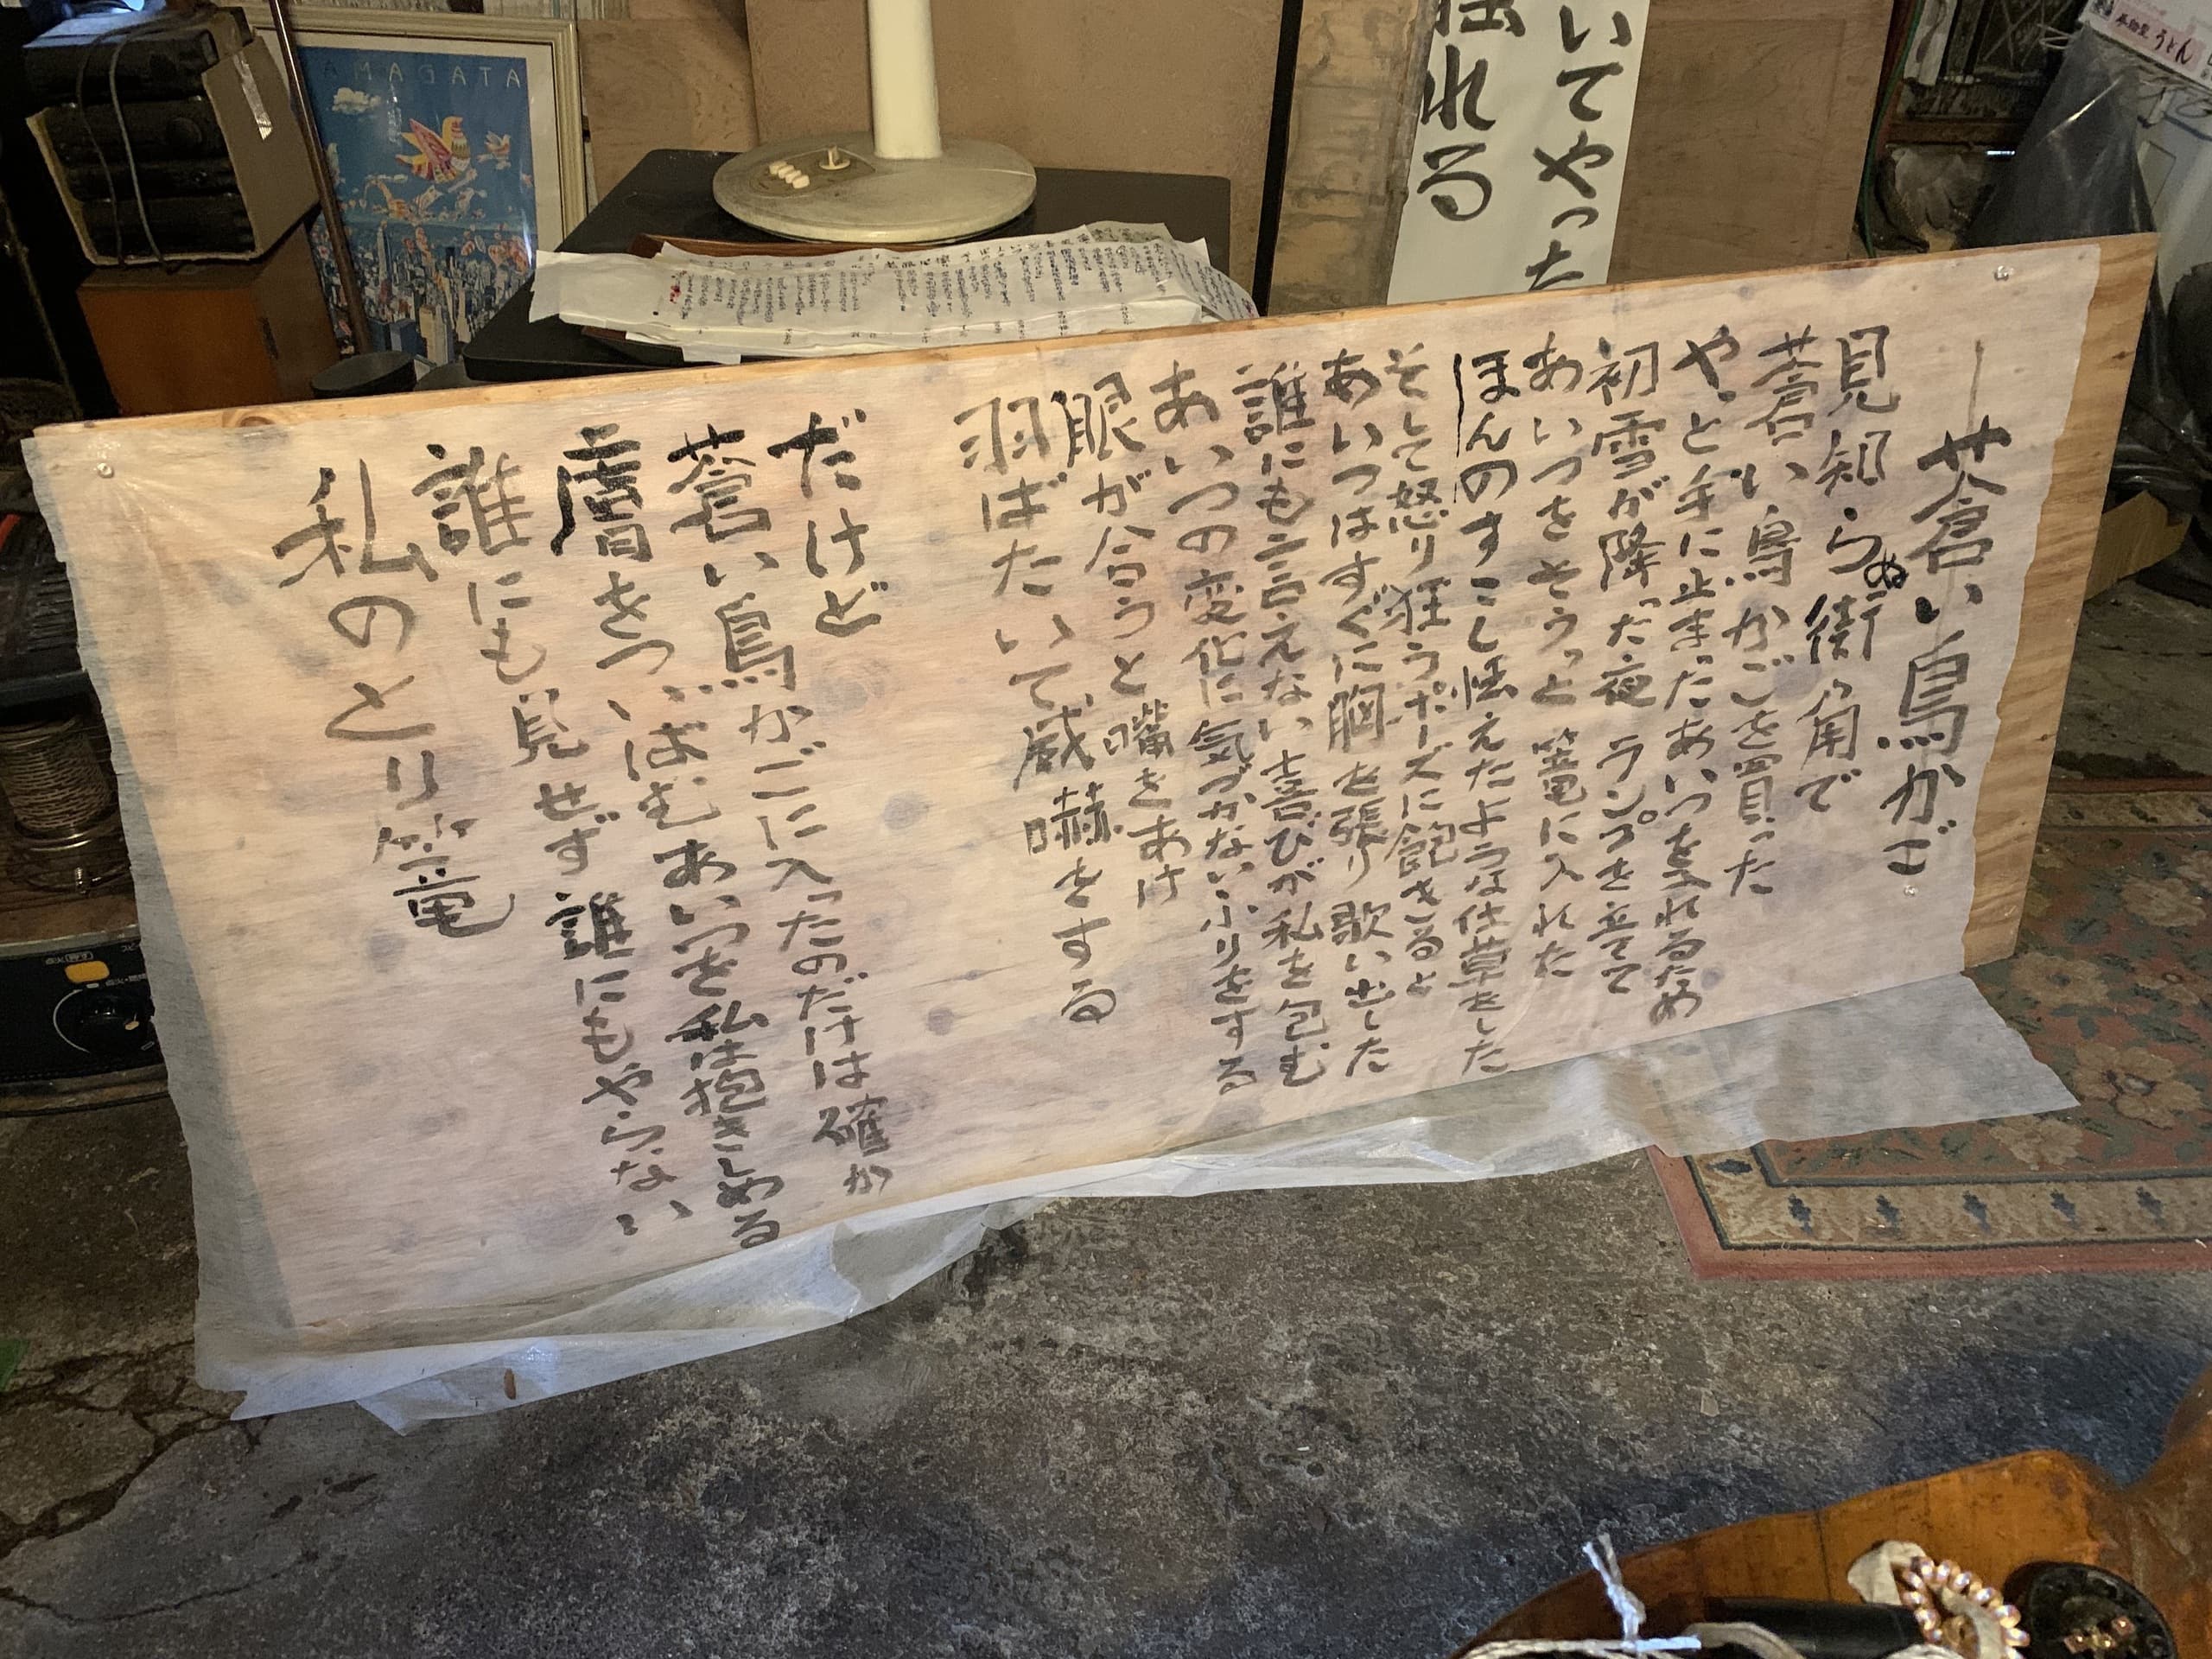 蒼い鳥かご
見知らぬ街角で
蒼い鳥かごを買った
やっと手に止まったあいつを入れるため
初雪が降った夜 ランプを立てて
あいつをそうっと 篭に入れた
ほんのすこし怯えたような仕草をした
そして怒り狂うポーズに飽きると
あいつはすぐに胸を張り歌い出した
誰にも言えない喜びが私を包む
あいつの変化に気づかないふりをする
眼が合うと嘴をあけ
羽ばたいて威嚇をする
だけど
蒼い鳥かごに入ったのだけは確か
唇をついばむあいつを私は抱きしめる
誰にも見せず誰にもやらない
私のとり篭
いてやった
れる
ATAGAMA
うどん